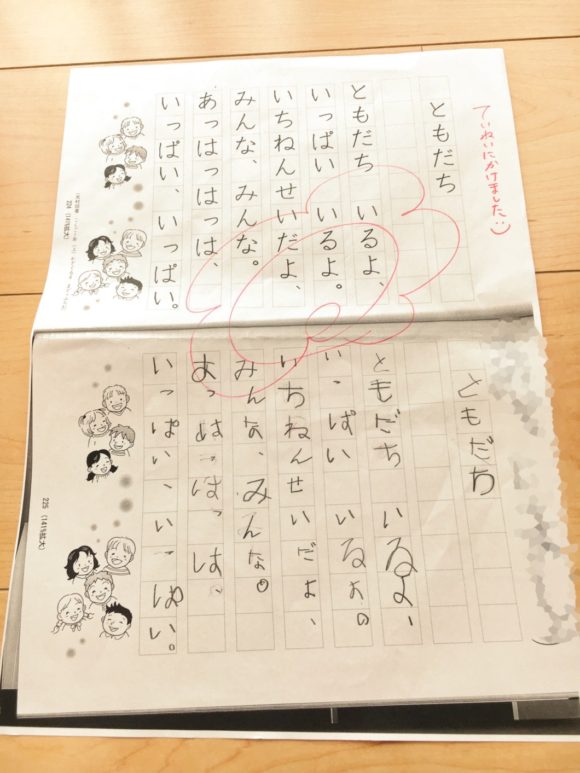 ていねいにかけました
ともだち
ともだち　いるよ、
いっぱい　いるよ。
いちねんせいだよ、
みんな、みんな。
あっはっはっは、
いっぱい、いっぱい。
224（141％拡大）
ともだち
ともだち　いるよ、
いっぱい　いるよ。
いちねんせいだよ、
みんな、みんな。
あっはっはっは、
いっぱい、いっぱい。
225（141％拡大）